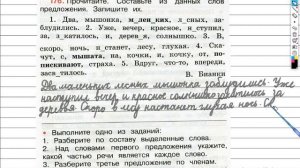 176. Прочитайте. Составьте из данных слов
предложения. Запишите их.
1. Два, мышонка, м_лен_ких, л_сных, за-
блудились. 2. Уже, вечер, красное, н_ступил,
за, з_катилось, и, дерев_я, солнышко. 3. В,
скоро, ночь, н_станет, лесу, глухая. 4. Ска-
чут, с, мышата, на, кочки, и, кочку, от, по-
пискивают, страха. 5. Вдруг, что-то, впереди,
зася_тилось.
В. Бианки
Два маленьких лесных мышонка заблудились. Уже
наступил вечер и красное солнышко закатилось за
деревья. Скоро в лесу настанет глухая ночь. Ск
• Выполните одно из заданий:
1. Разберите по составу выделенные слова.
2. Над словами первого предложения укажите,
какой частью речи является каждое слово.
3. Разберите третье предложение по членам